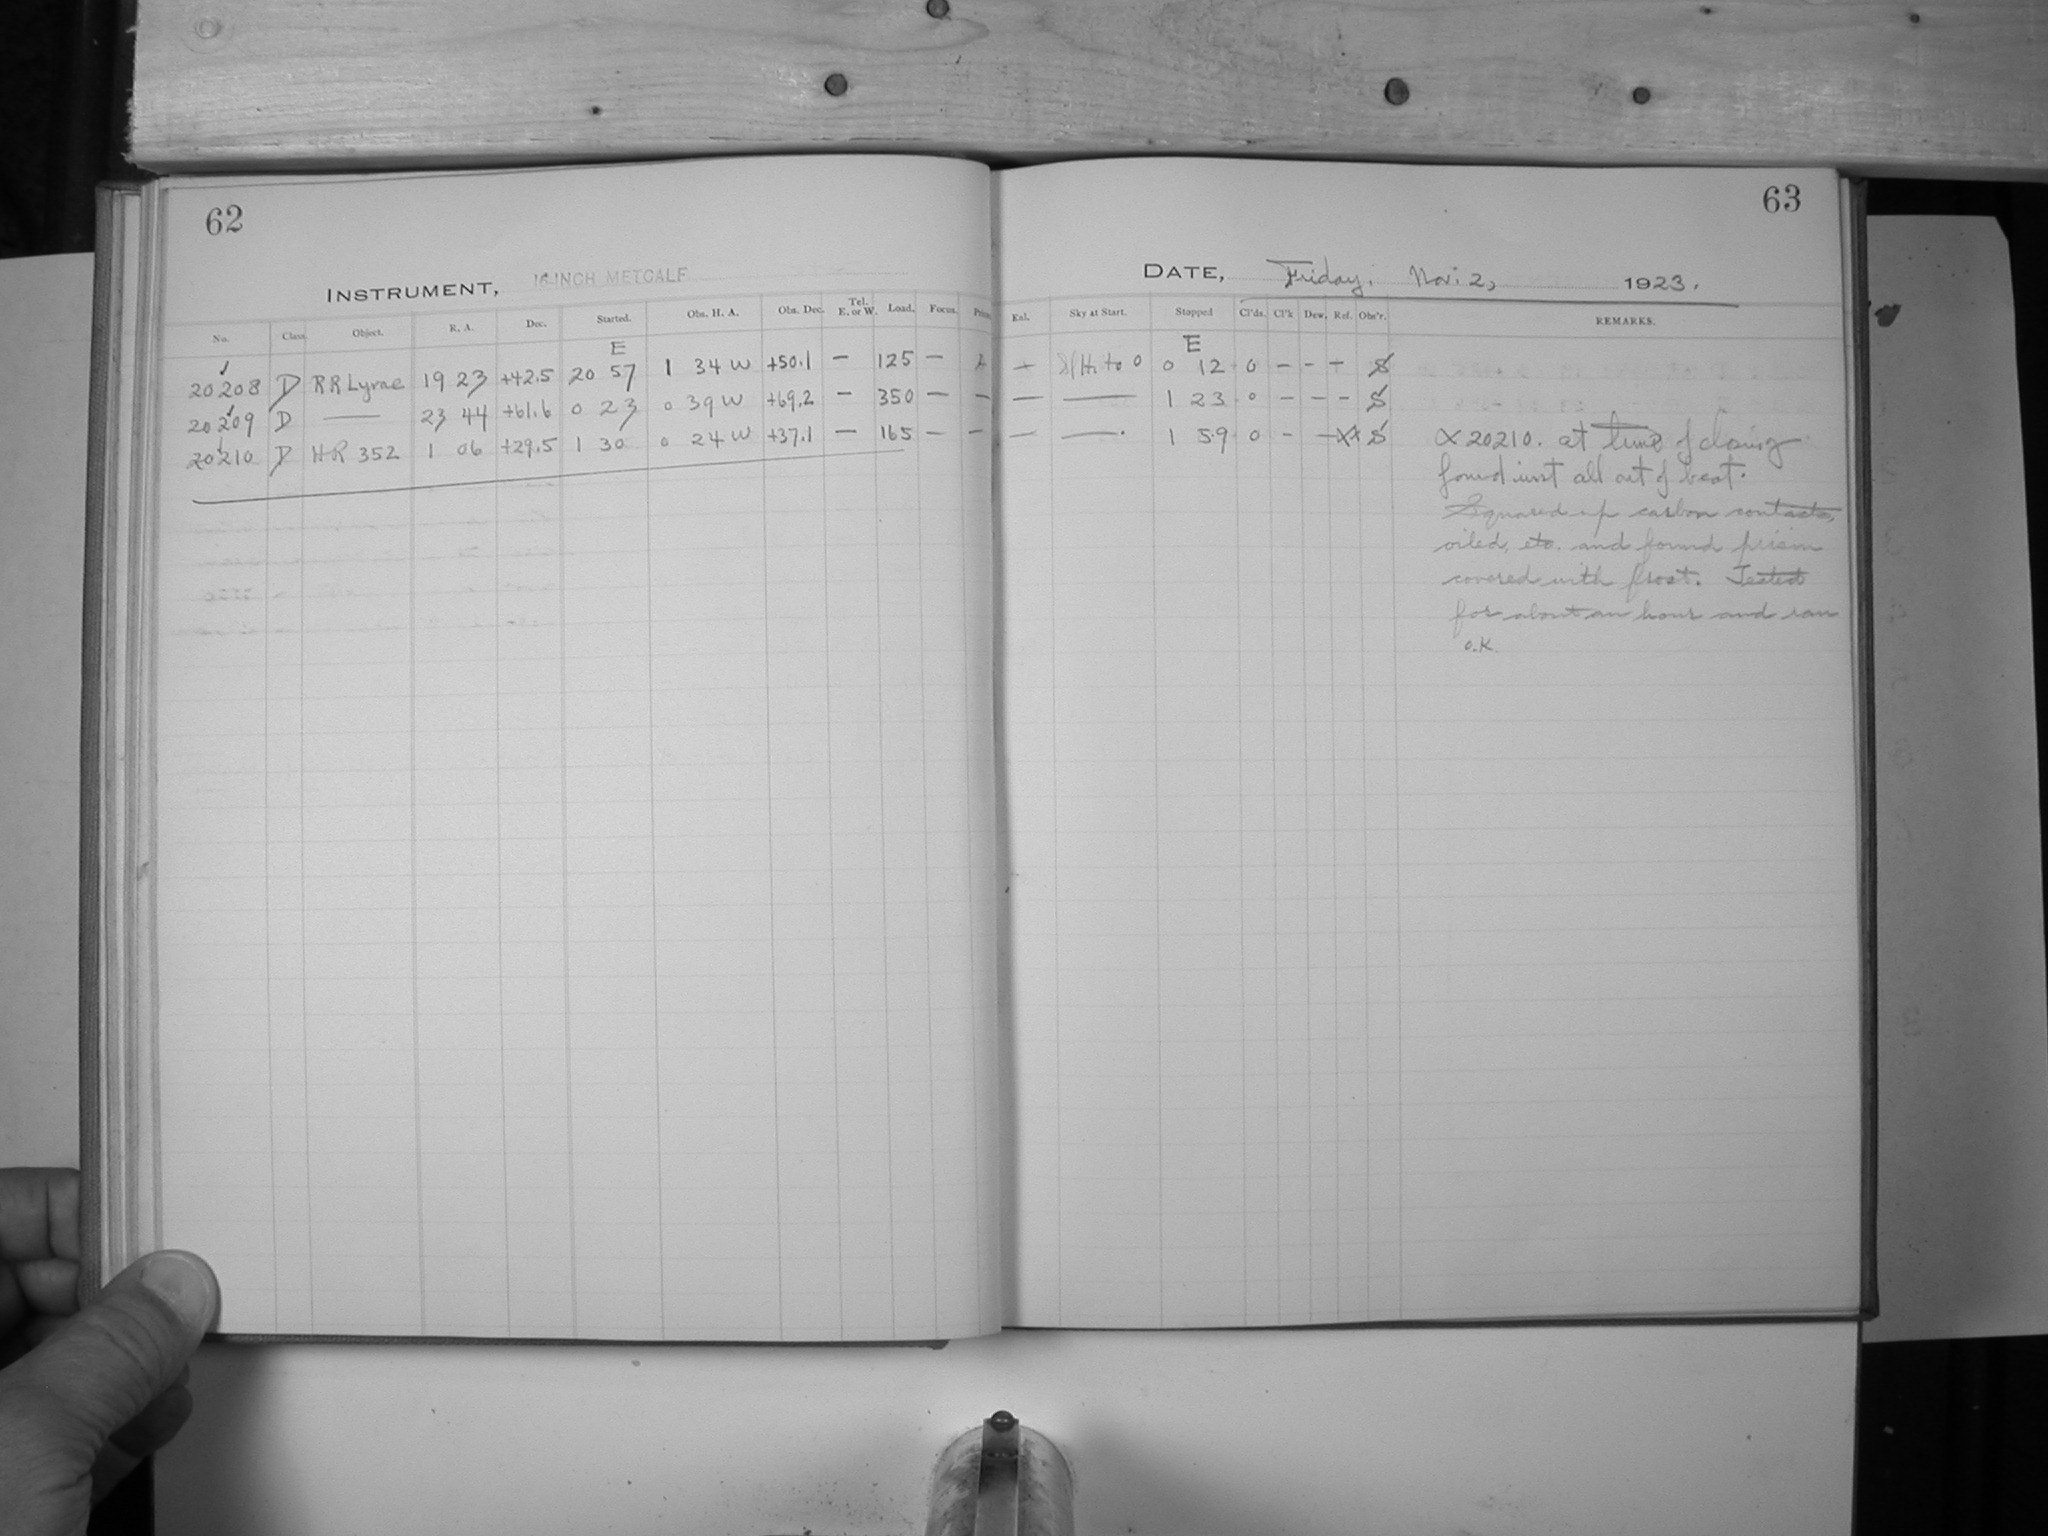 62
63
INSTRUMENT, 16-INCH METCALF
DATE, Friday, Nov. 2, 1923.
No. Class Object. R. A. Dec. Started. Obs. H. A. Obs. Dec. Tel. E. or W. Load. Focus. Prism Exl. Sky at Start. Stopped Cl'ds. Cl'k Dew. Ref. Obs'r. REMARKS.
E E
20208 D RR Lyrae 19 23 +42.5 20 57 1 34 W +50.1 — 125 — to 0 0 12 0 - - - S
20209 D — 23 44 +61.6 0 23 0 39 W +69.2 — 350 — — — — 1 23 0 - - - S
20210 D HR 352 1 06 +29.5 1 30 0 24 W +37.1 — 165 — — — — 1 59 0 - - XX S
X 20210. at time of closing
found inst all out of beat.
Squared up carbon contacts,
oiled, etc. and found prism
covered with frost. Tested
for about an hour and ran
o.K.